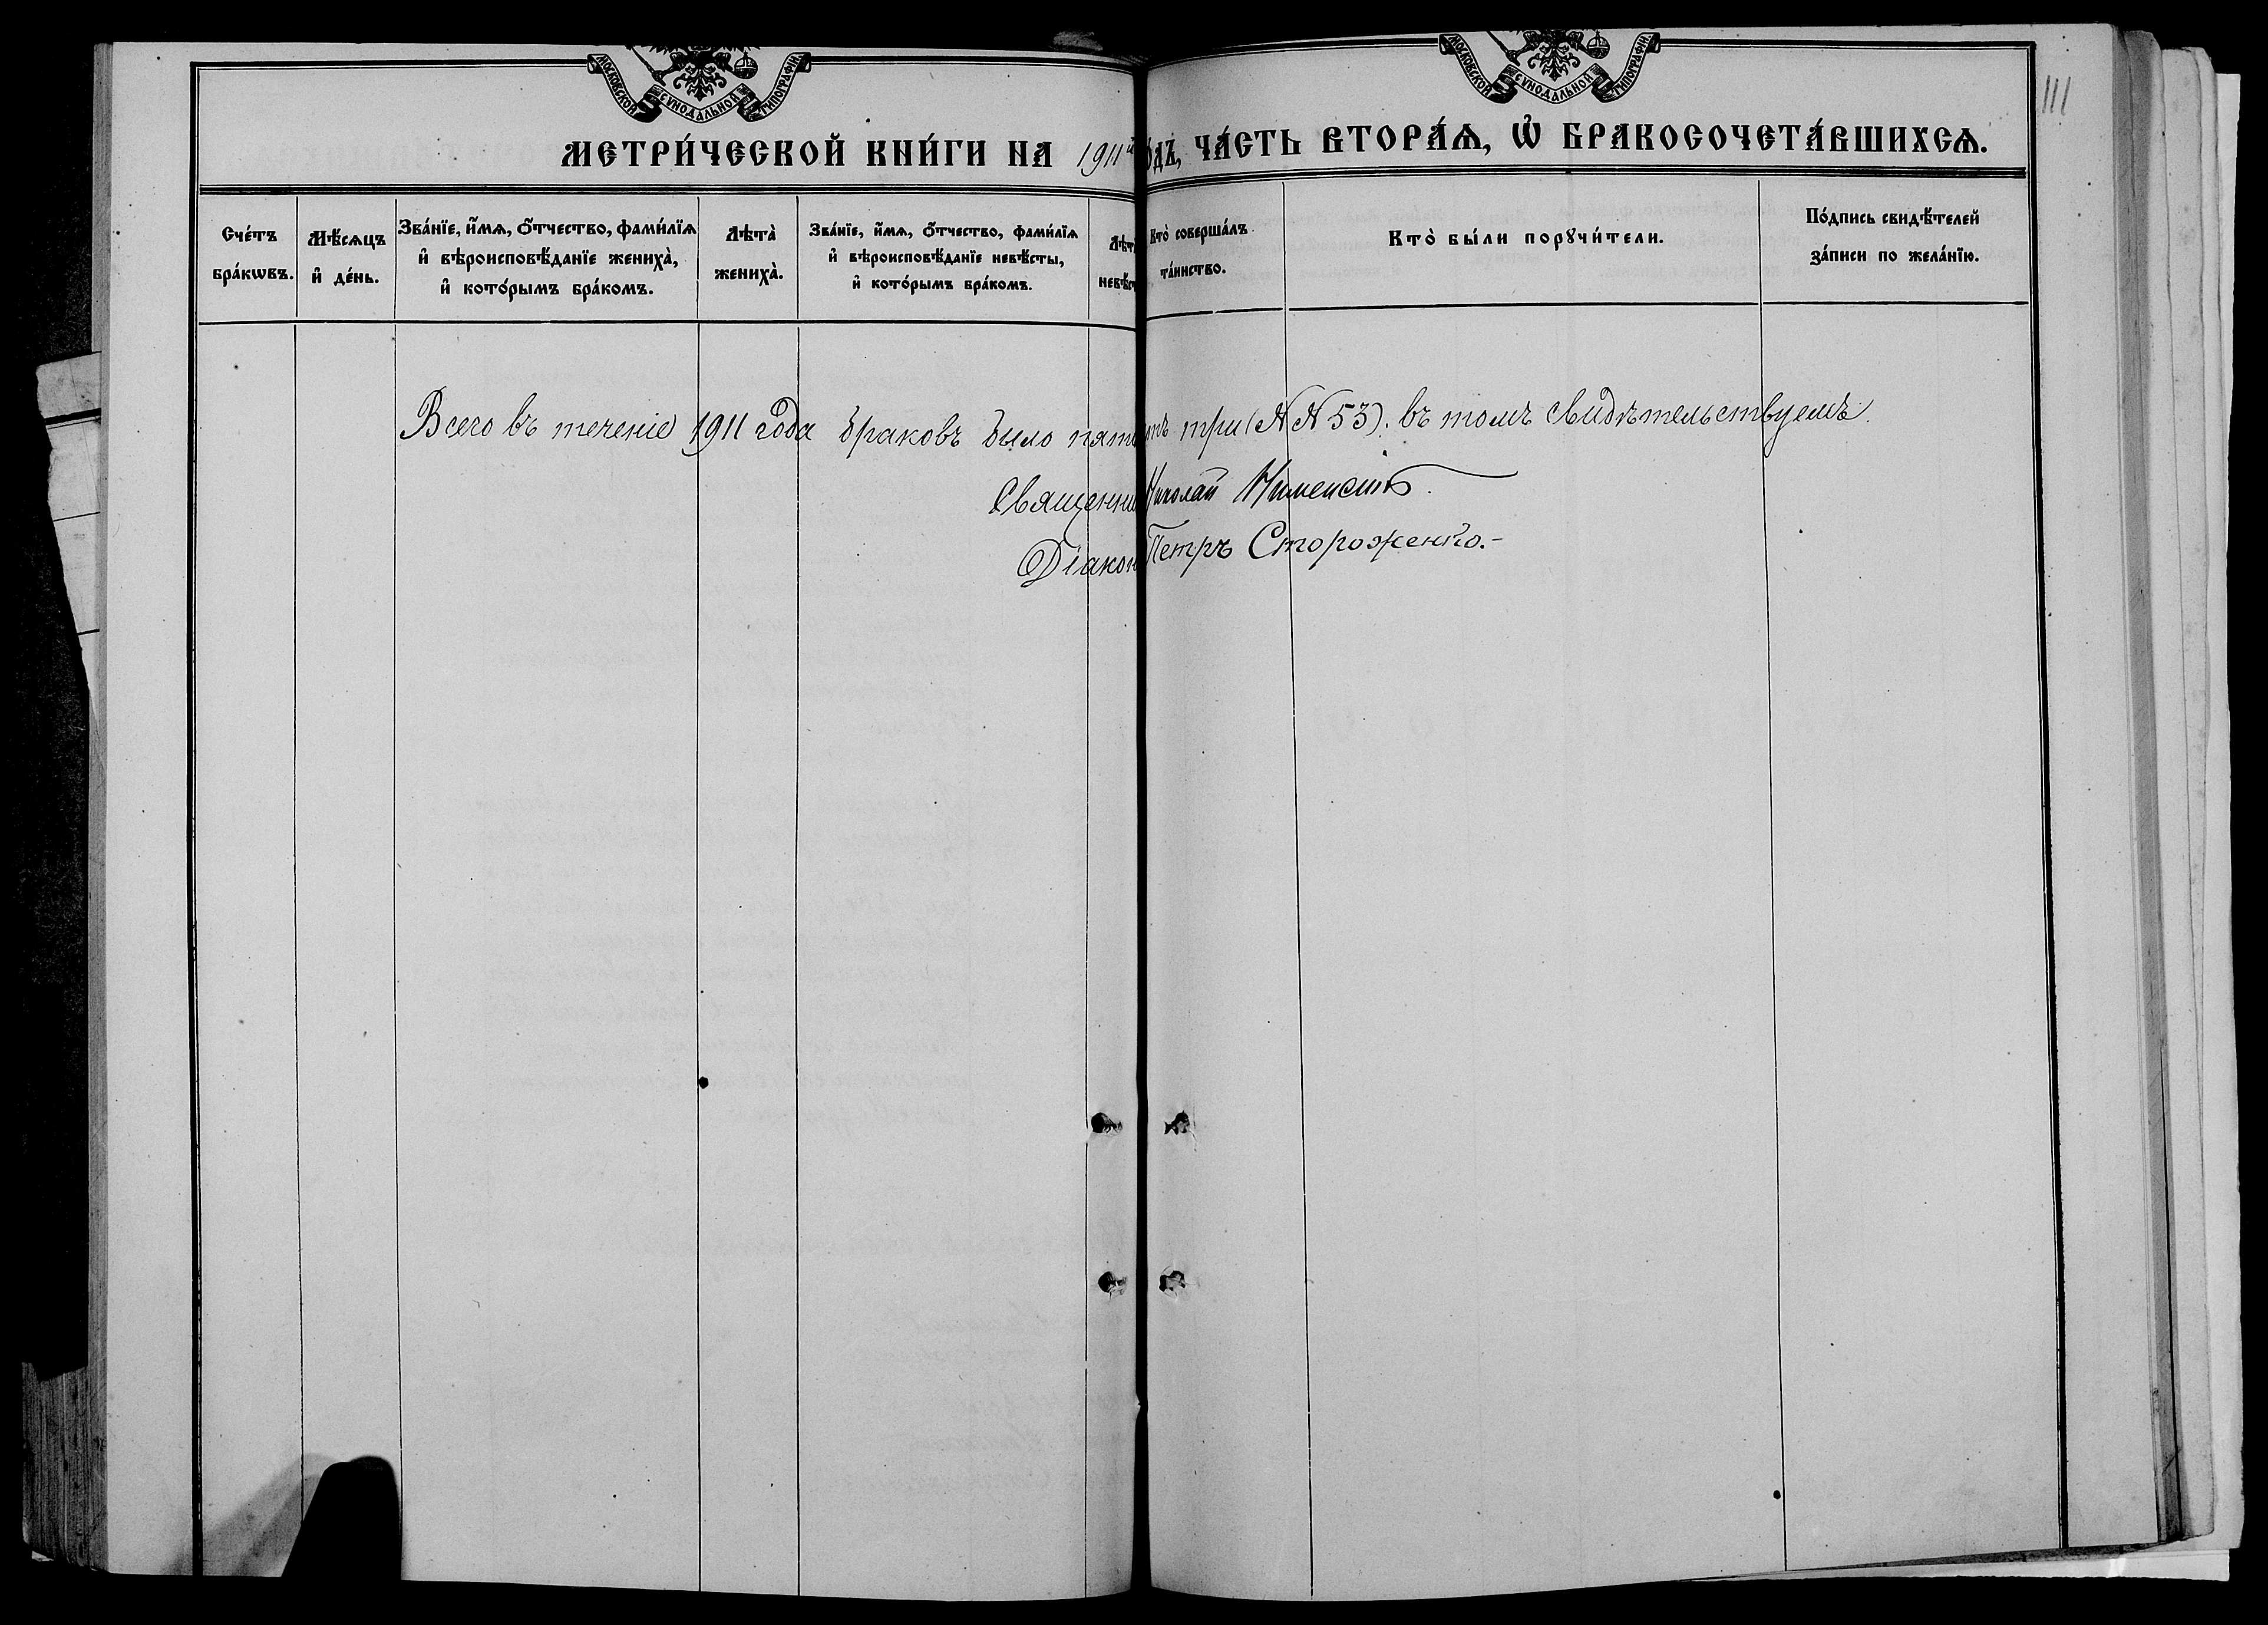 МОСКОВСКОЙ СѴНОДАЛЬНОЙ ТИПОГРАФІИ
МОСКОВСКОЙ СѴНОДАЛЬНОЙ ТИПОГРАФІИ
111
МЕТРИ́ЧЕСКОЙ КНИ́ГИ НА 1911й о́дъ, ЧА́СТЬ ВТОРА́Ѧ, Ѡ҆ БРАКОСОЧЕТА́ВШИХСѦ.
Сче́тъ
бра́кѡвъ.
Мѣ́сѧцъ
и҆ де́нь.
Зва́нїе, и҆́мѧ, ѻ҆́тчество, фами́лїѧ
и҆ вѣроисповѣ́данїе жениха̀,
и҆ кото́рымъ бра́комъ.
Лѣта̀
жениха̀.
Зва́нїе, и҆́мѧ, ѻ҆́тчество, фами́лїѧ
и҆ вѣроисповѣ́данїе невѣ́сты,
и҆ кото́рымъ бра́комъ.
Лѣт
невѣ́ст
Кто̀ соверша́лъ
та́инство.
Кто̀ бы́ли порꙋчи́тели.
По́дпись свидѣ́телей
за́писи по жела́нїю.
Всего въ теченіе 1911 года браковъ было пять три (№№ 53). въ томъ свидѣтельствуемъ.
Священни Николай
Діакон Петръ Стороженко.-